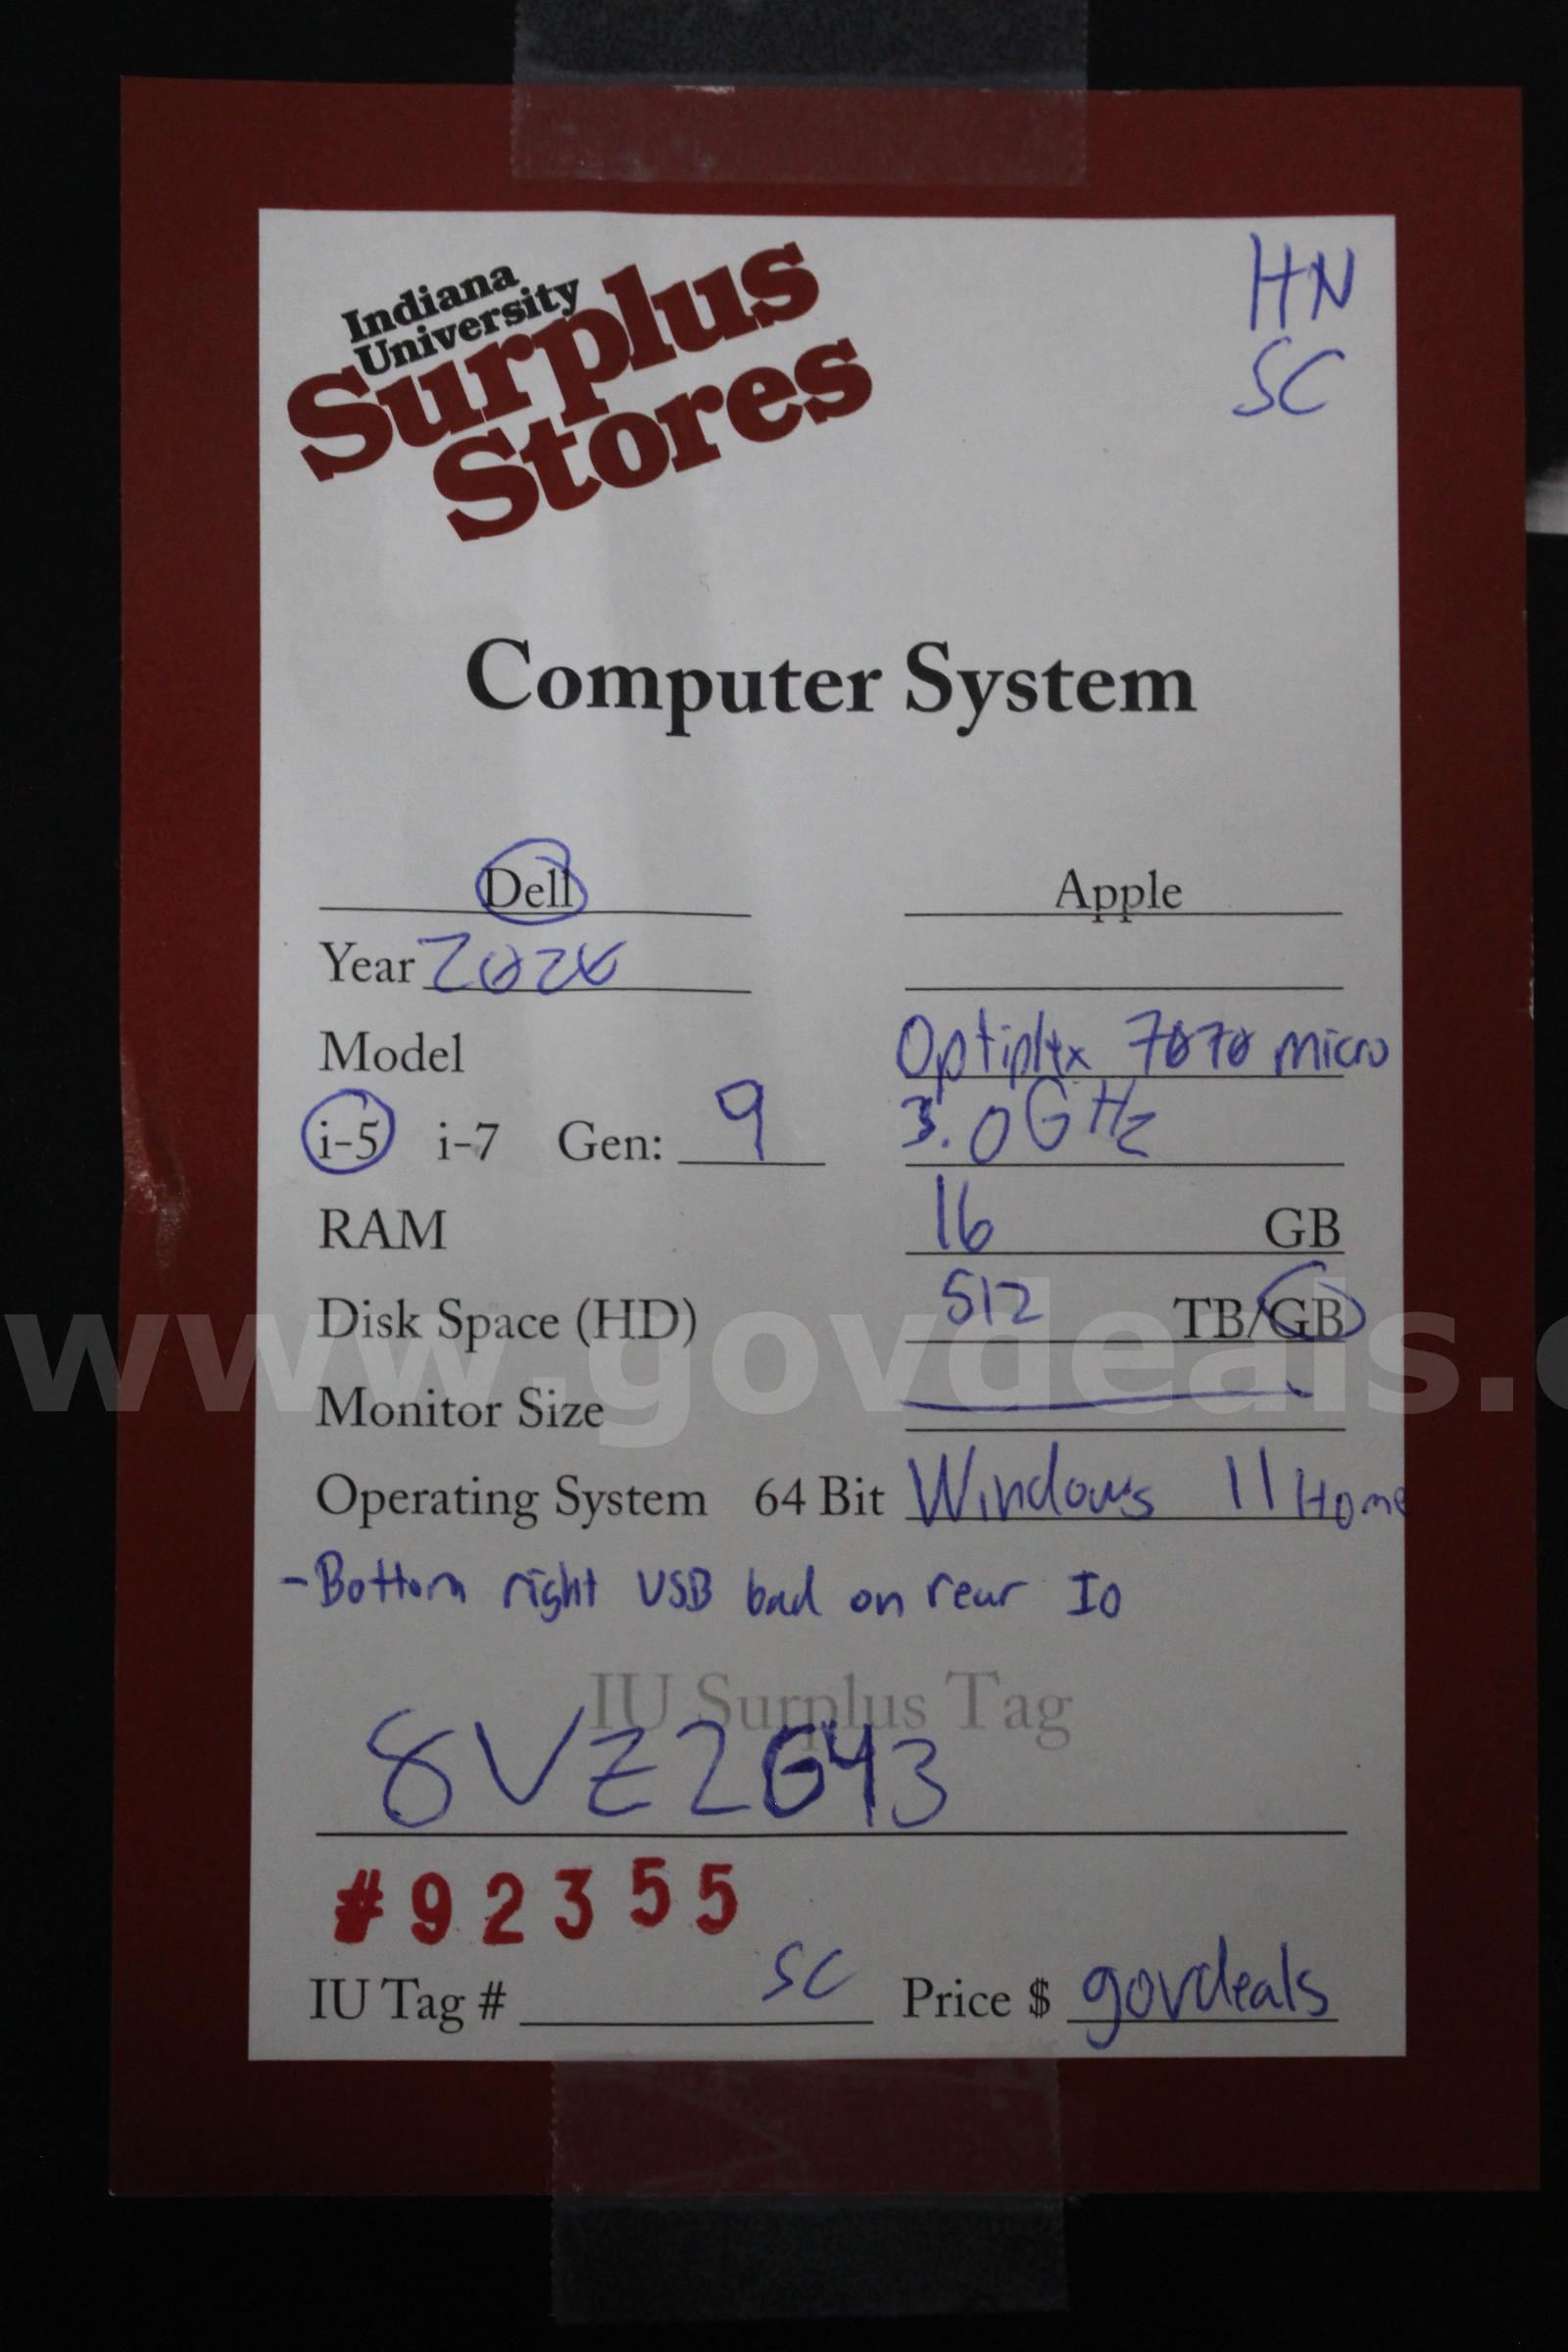 Indiana
University
Surplus
Stores
HN
SC
Computer System
Dell Apple
Year 2020
Model Optiplex 7070 micro
i-5 i-7 Gen: 9 3.0GHz
RAM 16 GB
Disk Space (HD) 512 TB/GB
www.govdeals.
Monitor Size
Operating System 64 Bit Windows 11 Home
-Bottom right USB bad on rear IO
IU Surplus Tag
8VZ2G43
#92355
IU Tag # SC Price $ govdeals